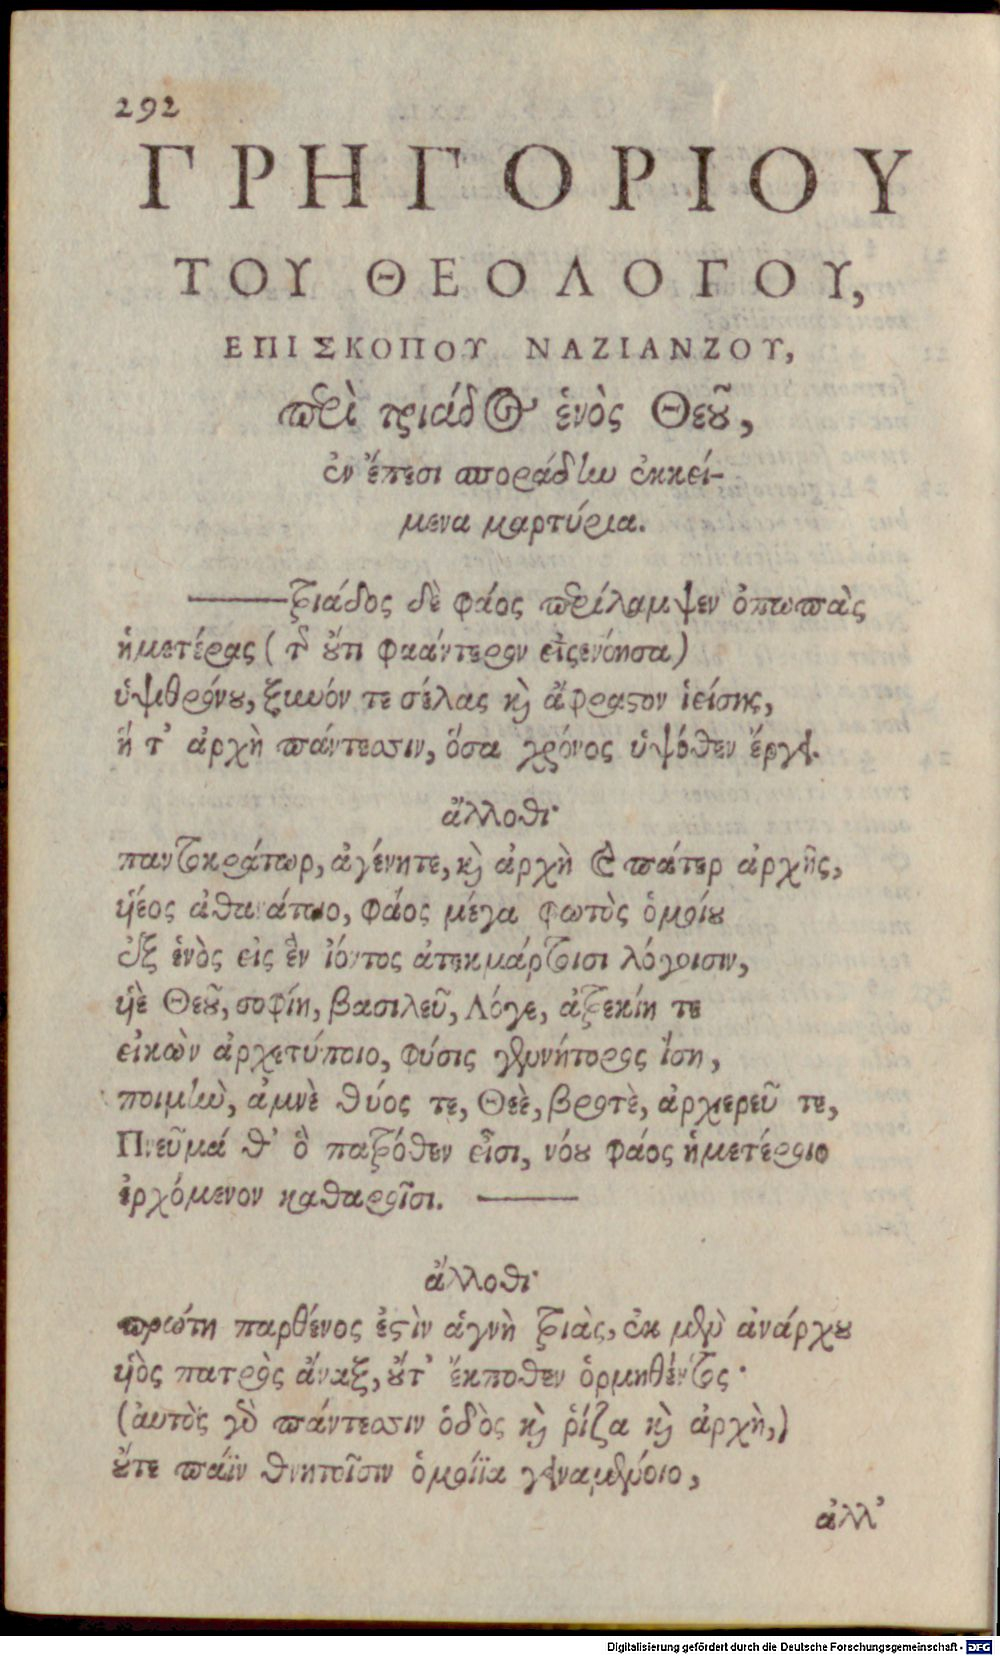 292
ΓΡΗΓΟΡΙΟΥ
ΤΟΥ ΘΕΟΛΟΓΟΥ,
ΕΠΙΣΚΟΠΟΥ ΝΑΖΙΑΝΖΟΥ,
περὶ τριάδος ἑνὸς Θεοῦ,
ἐν ἔπεσι σποράδην ἐκκεί-
μενα μαρτύρια.
———τριάδος δὲ φάος περίλαμψεν ὀπωπὰς
ἡμετέρας (τοῦ οὔτι φαάντερον εἰσενόησα)
ὑψιθρόνου, ξυνόν τε σέλας καὶ ἄφραστον ἱείσης,
ἥ τ' ἀρχὴ πάντεσσιν, ὅσα χρόνος ὑψόθεν ἔργει.
ἄλλοθι·
παντοκράτωρ, ἀγένητε, καὶ ἀρχὴ καὶ πάτερ ἀρχῆς,
ὑέος ἀθανάτοιο, φάος μέγα φωτὸς ὁμοίου
ἐξ ἑνὸς εἰς ἓν ἰόντος ἀτεκμάρτοισι λόγοισιν,
ὑὲ Θεοῦ, σοφίη, βασιλεῦ, Λόγε, ἀτρεκίη τε
εἰκὼν ἀρχετύποιο, φύσις γενήτορος ἴση,
ποιμὴν, ἀμνὲ θύος τε, Θεὲ, βροτὲ, ἀρχιερεῦ τε,
Πνεῦμά θ' ὃ πατρόθεν εἶσι, νόου φάος ἡμετέροιο
ἐρχόμενον καθαροῖσι. ———
ἄλλοθι·
πρώτη παρθένος ἐστὶν ἁγνὴ τριὰς, ἐκ μὲν ἀνάρχου
ὑὸς πατρὸς ἄναξ, οὔτ' ἔκποθεν ὁρμηθέντος·
(αὐτὸς γὰρ πάντεσσιν ὁδὸς καὶ ῥίζα καὶ ἀρχὴ,)
οὔτε πάϊν θνητοῖσιν ὁμοίϊα γειναμένοιο,
ἀλλ'
Digitalisierung gefördert durch die Deutsche Forschungsgemeinschaft - DFG